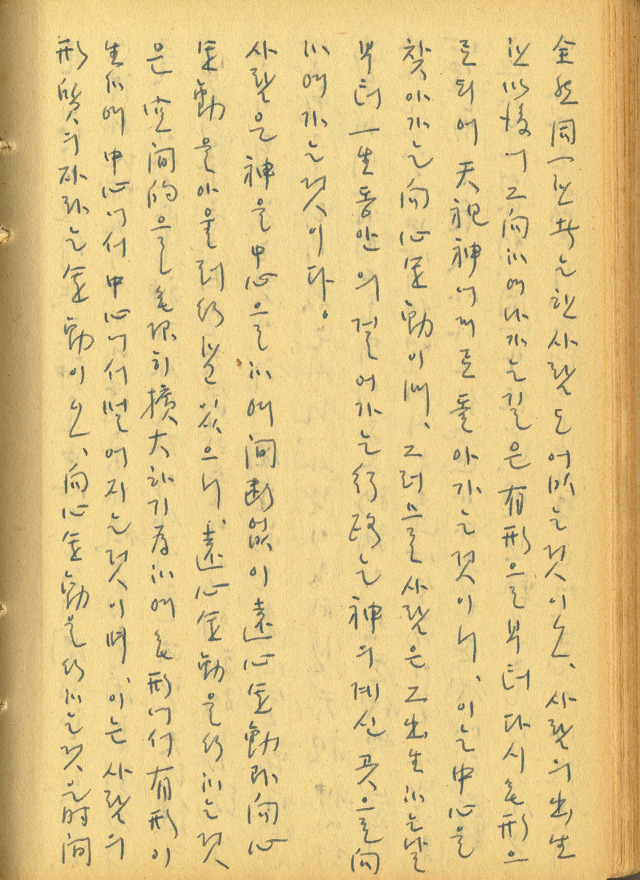 全然同一한 것는 한 사람도 어ᇝ는 것이오, 사람의 出生
한 以後에 그 向하여 나가는 길은 有形으로부터 다시 無形으
로 되여 天神에게로 돌아가는 것이니, 이는 中心을
찾아가는 向心運動이며, 그러므로 사람은 그 出生하는 날
부터 一生동안의 걸어가는 行路는 神의 계신 곳으로 向
하여 가는 것이다。
사람은 神을 中心으로 하여 間斷없이 遠心運動과 向心
運動을 아울러 行하고 있으니, 遠心運動을 行하는 것
은 空間的으로 無限히 擴大하기 爲하여 無形에서 有形이
生하여 中心에서 中心에서 떨어지는 것이며, 이는 사람의
形質의 자라는 運動이오, 向心運動을 行하는 것은 時間